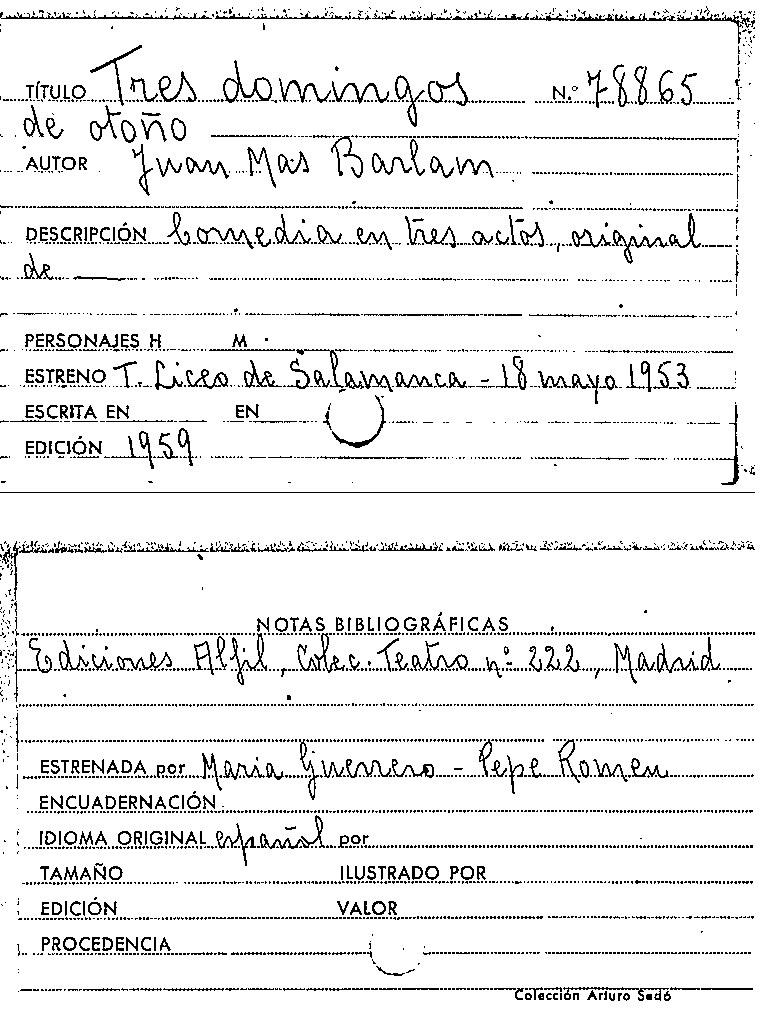 TÍTULO Tres domingos N.º 78865
de otoño
AUTOR Juan Mas Barlam
DESCRIPCIÓN Comedia en tres actos, original
de ———
PERSONAJES H M
ESTRENO T. Liceo de Salamanca - 18 mayo 1953
ESCRITA EN EN
EDICIÓN 1959
NOTAS BIBLIOGRÁFICAS
Ediciones Alfil, Colec. Teatro nº 222, Madrid
ESTRENADA por Maria Guerrero - Pepe Romeu
ENCUADERNACIÓN
IDIOMA ORIGINAL español por
TAMAÑO ILUSTRADO POR
EDICIÓN VALOR
PROCEDENCIA
Colección Arturo Sedó